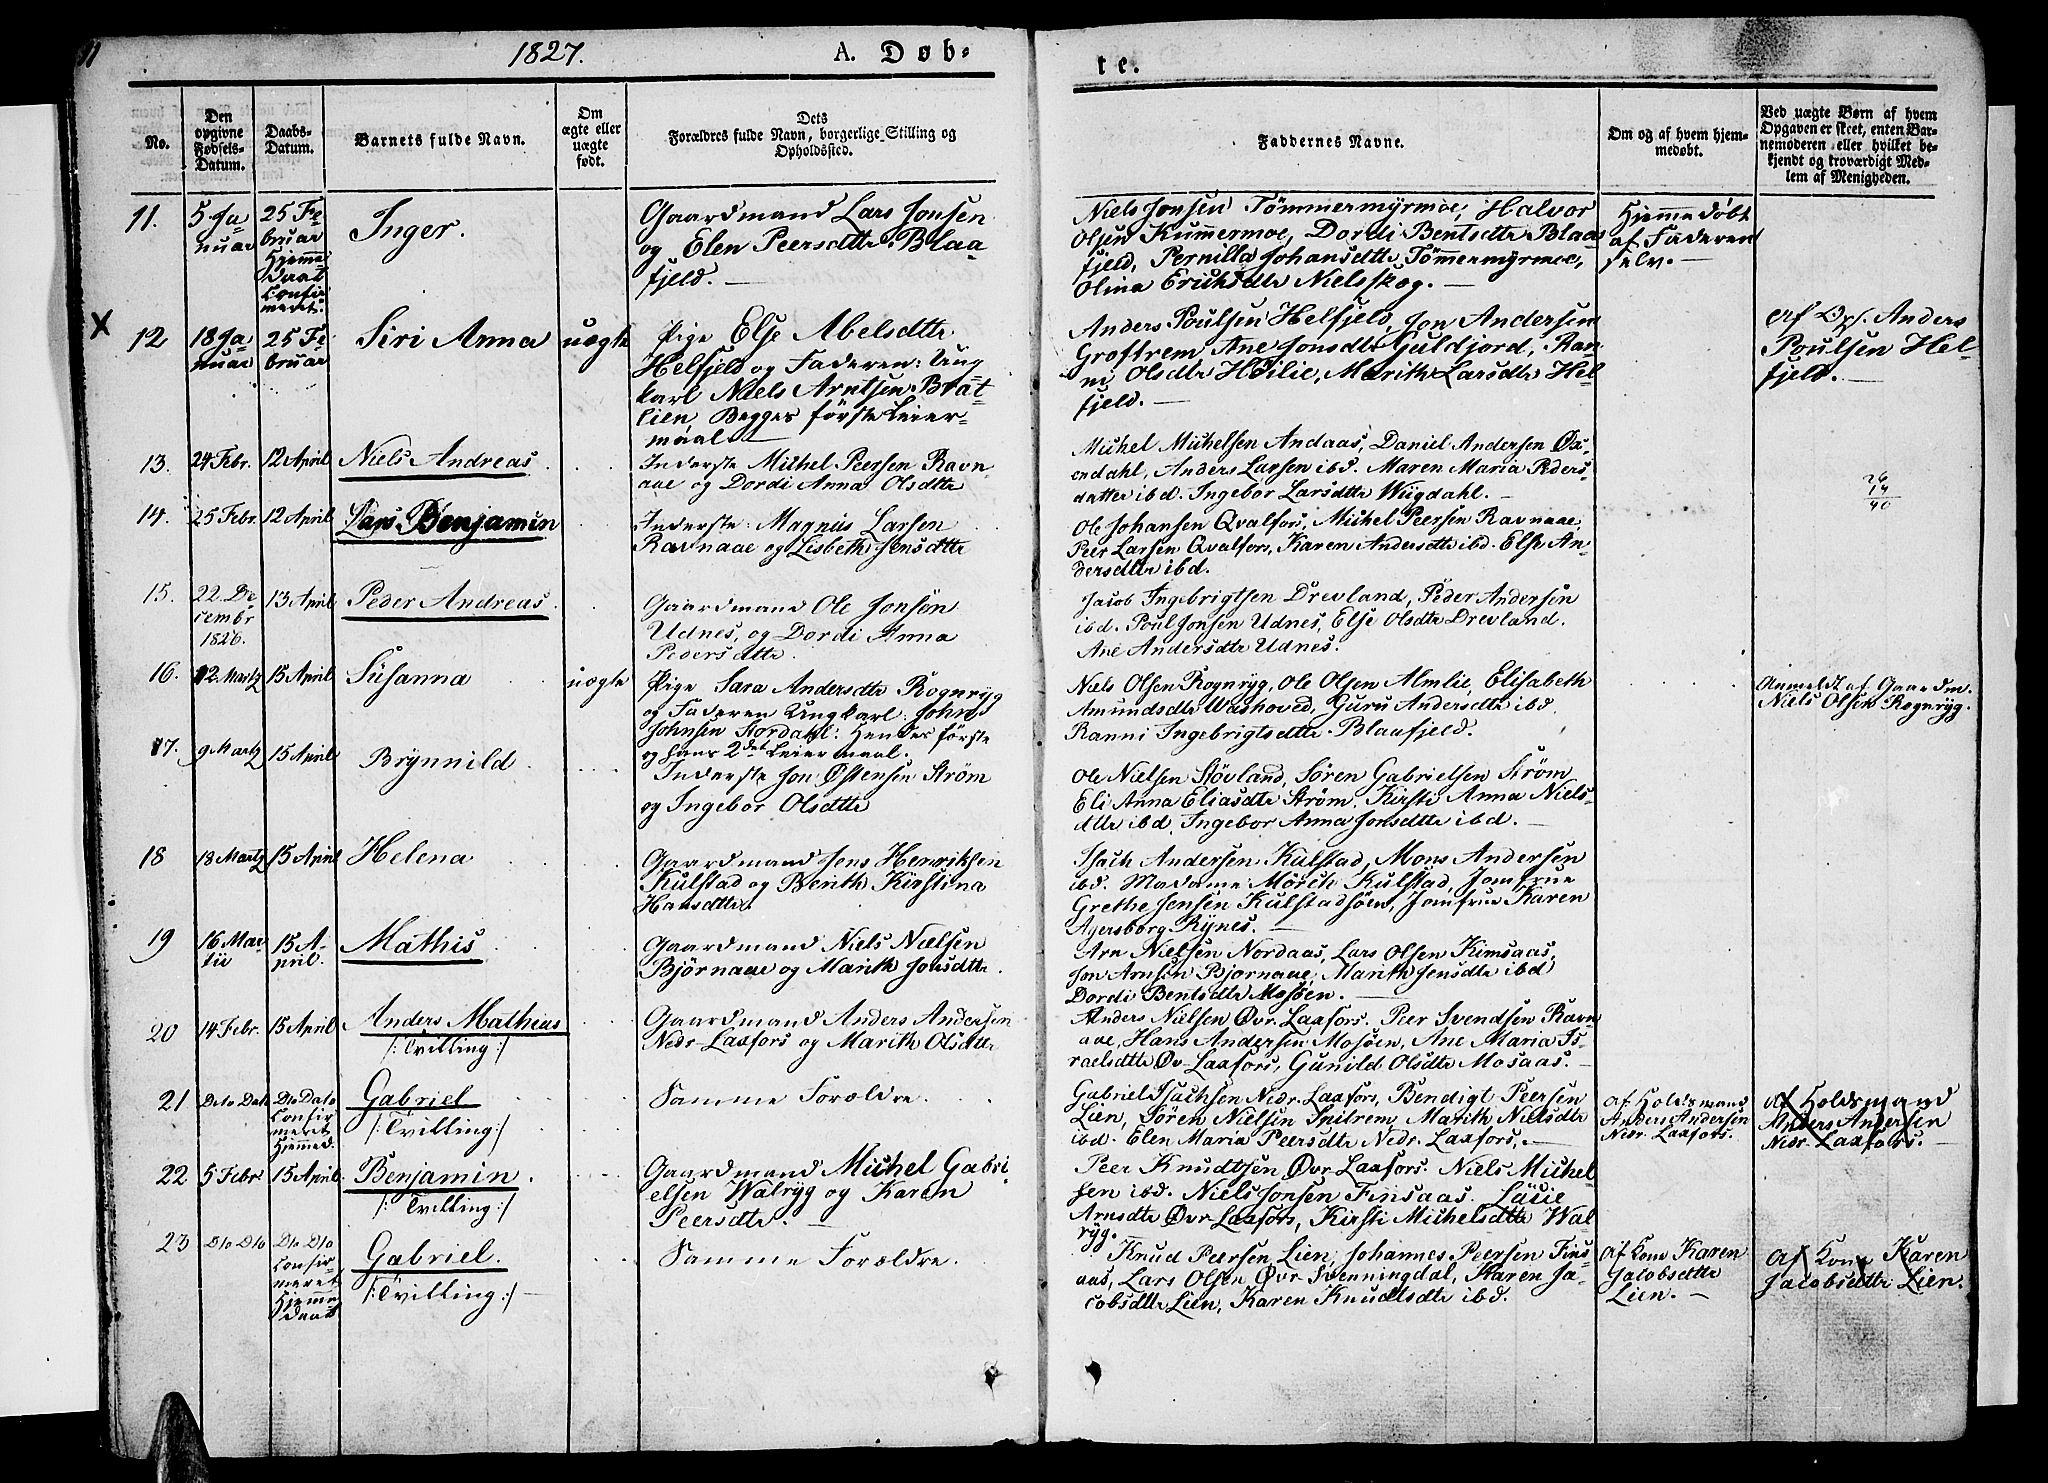 1827.
A. Døb-
te.
No.
Den
opgivne
Fødsels-
Datum.
Daabs-
Datum.
Barnets fulde Navn.
Om
ægte eller
uægte
født.
Dets
Forældres fulde Navn, borgerlige Stilling og
Opholdssted.
Faddernes Navne.
Om og af hvem hjem-
medøbt.
Ved uægte Børn af hvem
Opgaven er skeet, enten Bar-
nemoderen eller hvilket be-
kjendt og troværdigt Med-
lem af Menigheden.
11.
5 Ja
nuar
25 Fe-
bruar
Hjemme
Daab
Confir
meret.
Inger.
Gaardmand Lars Jonsen
og Elen Peersdttr Blaa
fjeld. —
Niels Jonsen Tömmermyrmoe, Halvor
Olsen Kummermoe, Dordi Bentsdttr Blaa
fjeld, Pernilla Johansdttr Tömmermyrmoe,
Olina Erichsdttr Nielsskog. —
Hjemmedøbt
af Faderen
selv. —
X
12
18 Ja
nuar
25 Fe
bruar
Siri Anna
uægte
Pige Else Abelsdttr
Helfjeld og Faderen: Ung
karl Niels Arntsen Brat-
lien Begges første Leier-
maal. —
Anders Poulsen Helfjeld, Jon Andersen
Groftrem, Ane Jonsdttr Guldjord, Ran-
ni Olsdttr Høilie, Marith Larsdttr Hel-
fjeld. —
Af Anders
Poulsen Hel-
fjeld. —
13.
24 Febr.
12 April
Niels Andreas
Inderste Michel Peersen Ravn-
aae og Dordi Anna Olsdttr
Michel Michelsen Andaas, Daniel Andersen Øx-
endahl, Anders Larsen ibd. Maren Maria Peders
datter ibd. Ingebor Larsdttr Wügdahl. —
26
14
40
14.
25 Febr.
12 April
Lars Benjamin
Inderste: Magnus Larsen
Ravnaae og Lisbeth Jensdttr
Ole Johansen Qvalfors, Michel Peersen Ravnaae,
Peer Larsen Qvalfors, Karen Andersdttr ibd. Else An-
dersdttr ibd.
15.
22 De
cembr
1826.
13 April
Peder Andreas
Gaardmand Ole Jonsön
Udnes, og Dordi Anna
Pedersdttr.
Jacob Ingebrigtsen Drevland, Peder Andersen
ibd. Poul Jonsen Udnes, Else Olsdttr Drevland.
Ane Andersdttr Udnes.
16.
12 Martz
15 April
Susanna
uægte
Pige Sara Andersdttr Rognryg
og Faderen Ungkarl: John
Johnsen Stordahl: Hendes første
og hans 2det Leiermaal.
Niels Olsen Rognryg, Ole Olsen Almlie, Elisabeth
Amundsdttr Washoved, Guru Andersdttr ibd.
Ranni Ingebrigtsdttr Blaafjeld.
Anmeldt af Gaardm.
Niels Olsen Rognryg.
17.
9 Martz
15 April
Brynnild
Inderste Jon Østensen Ström
og Ingebor Olsdttr
Ole Nielsen Stövland, Sören Gabrielsen Ström
Eli Anna Eliasdttr Ström, Kirsti Anna Niels-
dttr ibd, Ingebor Anna Jonsdttr ibd. —
18
18 Martz
15 April
Helena
Gaardmand Jens Henriksen
Kulstad og Berith Kirstina
Hansdttr.
Isach Andersen Kulstad, Mons Andersen
ibd. Madame Mörch Kulstad, Jomfrue
Grethe Jensen Kulstadsöen, Jomfrue Karen
Agersborg Rynes. —
19
16 Mar
tii
15 A-
pril.
Mathis
Gaardmand Niels Nielsen
Björnaae og Marith Jonsdttr.
Arn Nielsen Nordaas, Lars Olsen Kimsaas,
Jon Arnsen Bjornaae, Marith Jensdttr ibd
Dordi Bentsdttr Mosöen. —
20
14 Febr.
15 April
Anders Matheas
/: Tvilling :/
Gaardmand Anders Andersen
Nedr Laxfors og Marith Olsdttr
Anders Nielsen Øvr Laxfors. Peer Svendsen Ravn
aae, Hans Andersen Mosöen, Ane Maria Is-
raelsdttr Øv. Laxfors, Gunild Olsdttr Mosaas. —
21
Dito Dato
Dto Dato
Confir
meret
Hjemmed.
Gabriel
/: Tvilling :/
Samme Forældre.
Gabriel Isachsen Nedr. Laxfors, Bendigt Peersen
Lien, Sören Nielsen Smitrem, Marith Nielsdttr
ibd. Elen Maria Peersdttr Nedr. Laxfors. —
Af Holdsmand
Anders Andersen
Nedr. Laxfors.
Af Holdsmand
Anders Andersen
Nedr. Laxfors. —
22
5 Febr
15 April.
Benjamin
/: Tvilling :/
Gaardmand Michel Gabri
elsen Walryg og Karen
Peersdttr. —
Peer Knudtsen Øvr Laxfors. Niels Michel
sen ibd. Niels Jonsen Finsaas.
Arnsdttr Øvr Laxfors, Kirsti Michelsdttr Wal-
ryg.
23
Dto Dto
Dto Dto
Confir-
meret
Hjemme
daab
Gabriel.
/: Tvilling :/
Samme Forældre.
Knud Peersen Lien, Johannes Peersen Fins
aas, Lars Olsen Øvr Svenningdal, Karen Ja-
cobsdttr Lien, Karen Knudtsdttr ibd.
Af Kone Karen
Jacobsdttr
Lien. —
Af Kone Karen
Jacobsdttr Lien.